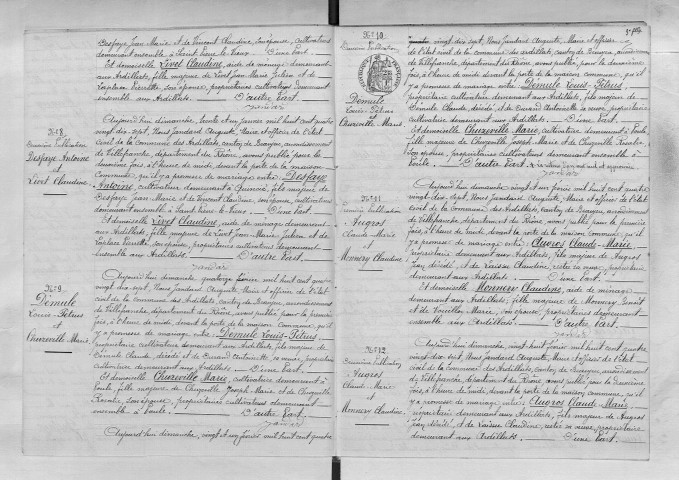 Desfaye Jean Marie et de Vincent Claudine, son épouse, cultivateurs
demeurant ensemble à Saint Didier D'une Part.
Et demoiselle Livet Claudine, aide de ménage demeurant
aux Ardillats, fille majeure de Livet Jean Marie Julien et de
son épouse, propriétaires cultivateurs demeurant
ensemble aux Ardillats. D'autre Part.
N° 8
Deuxième Publication
Desfaye Antoine
et
Livet Claudine
Aujourd'hui dimanche, trente et un janvier mil huit cent quatre
vingt dix sept, Nous Jandard Auguste, Maire et officier de l'état
civil de la Commune des Ardillats, canton de Beaujeu, arrondissement
de Villefranche, département du Rhône, avons publié pour la
deuxième fois, à l'heure de midi, devant la porte de la maison
Commune, qu'il y a promesse de mariage entre Desfaye
Antoine, cultivateur demeurant à Quincié, fils majeur de
Desfaye Jean Marie et de Vincent Claudine, son épouse, cultivateurs
demeurant ensemble à Saint D'une Part.
Et demoiselle Livet Claudine, aide de ménage demeurant
aux Ardillats, fille majeure de Livet Jean Marie Julien et de
son épouse, propriétaires cultivateurs demeurant
ensemble aux Ardillats. D'autre Part.
N° 9
Démule
Louis Pétrus
et
Chuzeville Marie
Aujourd'hui dimanche quatorze février mil huit cent quatre
vingt dix sept, Nous Jandard Auguste, Maire et officier de l'état
civil de la commune des Ardillats, canton de Beaujeu, arrondissement
de Villefranche, département du Rhône, avons publié pour la première
fois, à l'heure de midi, devant la porte de la maison commune, qu'il
y a promesse de mariage entre Démule Louis Pétrus,
propriétaire cultivateur demeurant aux Ardillats, fils majeur de
Démule Claude, décédé et de Durand Antoinette sa veuve, propriétaire
cultivateur demeurant aux Ardillats. D'une Part.
Et demoiselle Chuzeville Marie, cultivatrice demeurant à
Poule, fille majeure de Chuzeville Joseph Marie et de Chuzeville
Rosalie, son épouse, propriétaires cultivateurs demeurant
ensemble à Poule. D'autre Part.
Aujourd'hui dimanche, vingt et un février mil huit cent quatre
N° 10
Deuxième Publication
Démule
Louis Pétrus
et
Chuzeville Marie
vingt dix sept, Nous Jandard Auguste, Maire et officier
de l'état civil de la commune des Ardillats, canton de Beaujeu, arrondissement
de Villefranche, département du Rhône, avons publié pour la deuxième
fois, à l'heure de midi devant la porte de la maison commune, qu'il
y a promesse de mariage entre Démule Louis Pétrus,
propriétaire cultivateur demeurant aux Ardillats, fils majeur de
Démule Claude, décédé, et de Durand Antoinette sa veuve, propriétaire
cultivateur demeurant aux Ardillats. D'une Part.
Et demoiselle Chuzeville Marie, cultivatrice demeurant à Poule,
fille majeure de Chuzeville Joseph Marie et de Chuzeville Rosalie,
son épouse, propriétaires cultivateurs demeurant ensemble à
Poule. D'autre Part.
N° 11
Première Publication
Augros
Claude Marie
et
Monnery Claudine
Aujourd'hui dimanche vingt et un février mil huit cent quatre
vingt dix sept, Nous Jandard Auguste, Maire et officier de l'état
civil de la Commune des Ardillats, canton de Beaujeu, arrondissement
de Villefranche, département du Rhône, avons publié pour la première
fois, à l'heure de midi, devant la porte de la maison commune, qu'il
y a promesse de mariage entre Augros Claude Marie,
propriétaire demeurant aux Ardillats, fils majeur de Augros
Jean décédé, et de Claudine, sa veuve, propriétaire
demeurant aux Ardillats. D'une Part.
Et demoiselle Monnery Claudine, aide de ménage
demeurant aux Ardillats, fille majeure de Monnery Benoît
et de Marie, son épouse, propriétaires demeurant
ensemble aux Ardillats. D'autre Part.
N° 12
Deuxième Publication
Augros
Claude Marie
et
Monnery Claudine
Aujourd'hui dimanche, vingt huit février mil huit cent quatre
vingt dix sept, Nous Jandard Auguste, Maire et officier de l'état
civil de la commune des Ardillats, canton de Beaujeu, arrondissement
de Villefranche, département du Rhône, avons publié pour la deuxième
fois, à l'heure de midi, devant la porte de la maison commune, qu'il y
a promesse de mariage entre Augros Claude Marie,
propriétaire demeurant aux Ardillats, fils majeur de Augros
Jean décédé, et de Claudine, sa veuve, propriétaire
demeurant aux Ardillats. D'une Part.